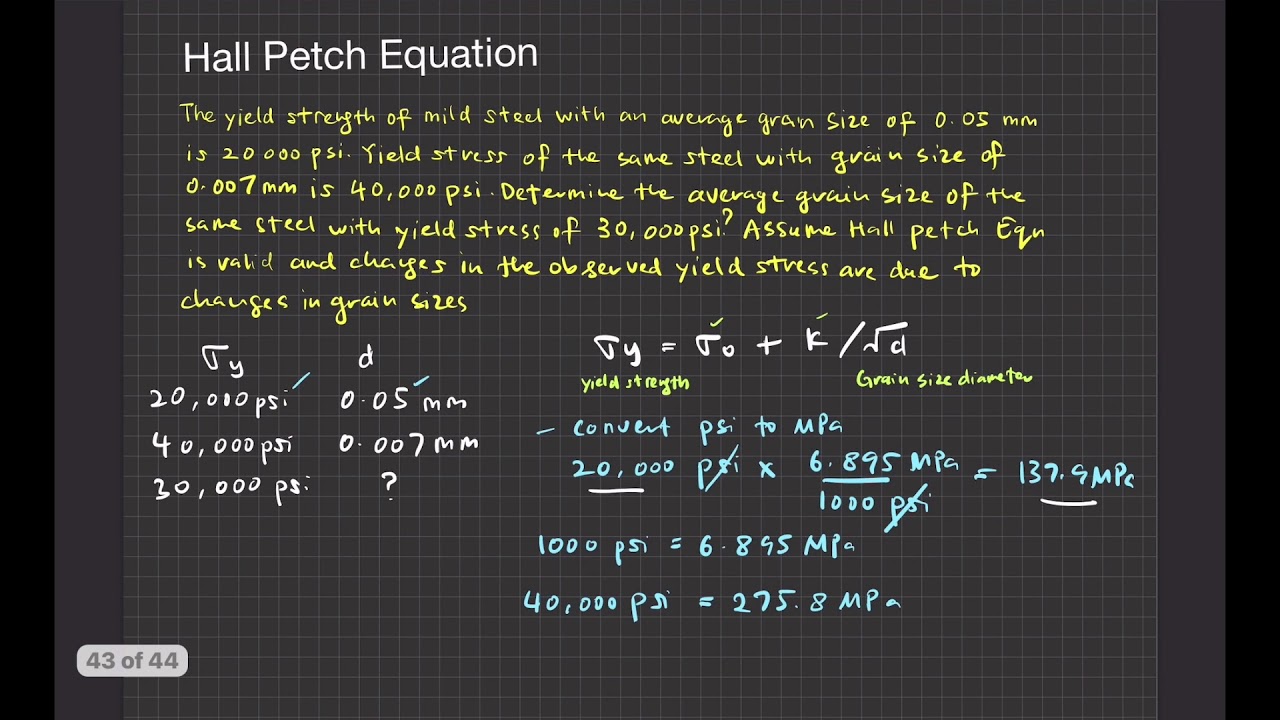 Hall Petch Equation
The yield strength of mild steel with an average grain size of 0.05 mm
is 20 000 psi. Yield stress of the same steel with grain size of
0.007 mm is 40,000 psi. Determine the average grain size of the
same steel with yield stress of 30,000 psi? Assume Hall petch Eqn
is valid and changes in the observed yield stress are due to
changes in grain sizes
σy d
20,000 psi 0.05 mm
40,000 psi 0.007 mm
30,000 psi ?
σy = σo + K /√d
yield strength Grain size diameter
- convert psi to MPa
20,000 psi x 6.895 MPa / 1000 psi = 137.9 MPa
1000 psi = 6.895 MPa
40,000 psi = 275.8 MPa
43 of 44